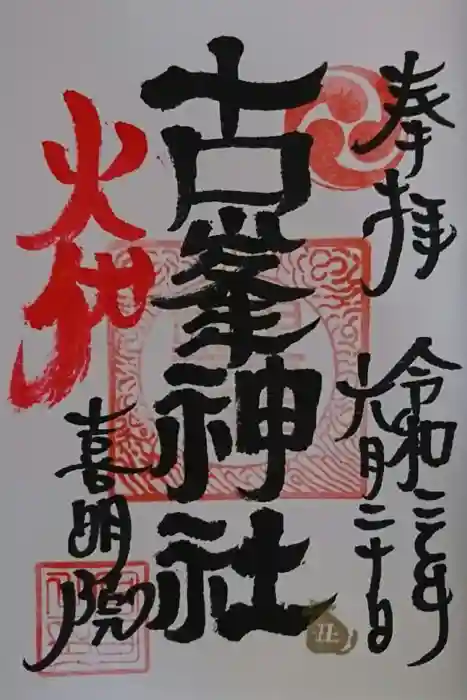 奉拝
令和三年
六月二十日
古峯神社
火
喜明院
丑